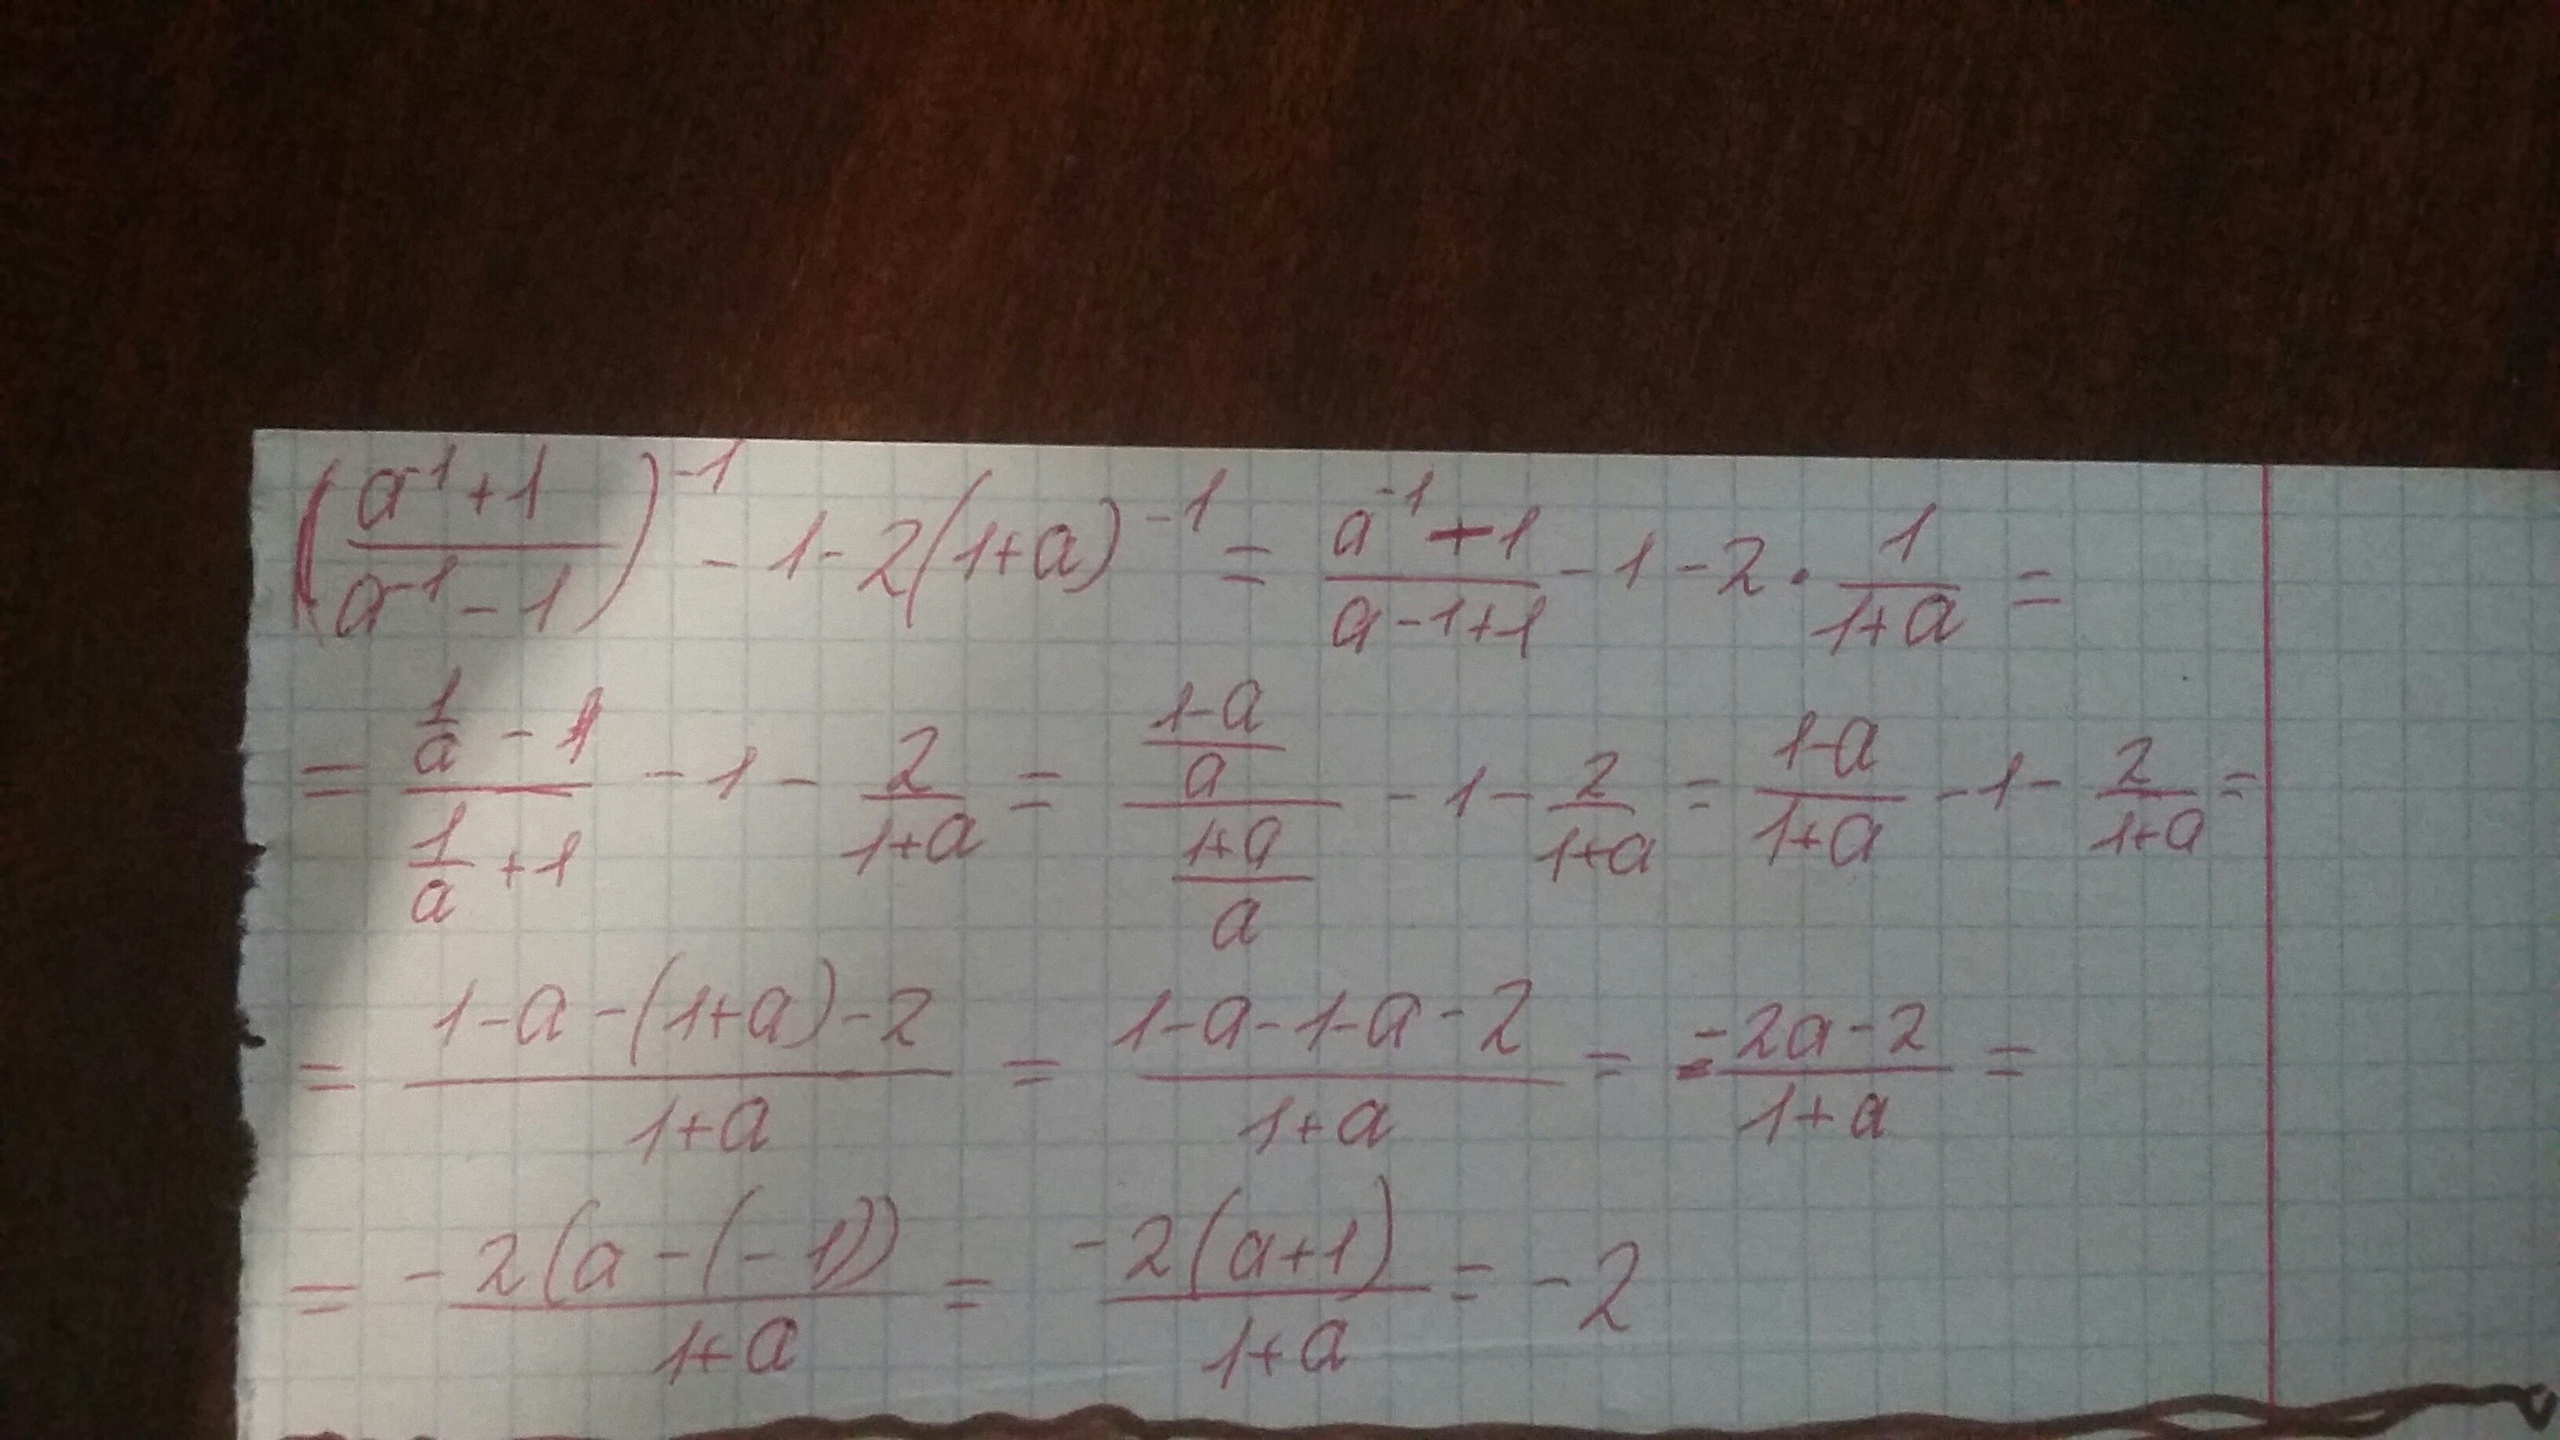 ((a⁻¹+1)/(a⁻¹-1))⁻¹ - 1 - 2(1+a)⁻¹ = (a⁻¹+1)/(a-1+1) - 1 - 2 · 1/(1+a) =
= (1/a - 1)/(1/a + 1) - 1 - 2/(1+a) = ((1-a)/a)/((1+a)/a) - 1 - 2/(1+a) = (1-a)/(1+a) - 1 - 2/(1+a) =
= (1-a-(1+a)-2)/(1+a) = (1-a-1-a-2)/(1+a) = (-2a-2)/(1+a) =
= -2(a-(-1))/(1+a) = -2(a+1)/(1+a) = -2